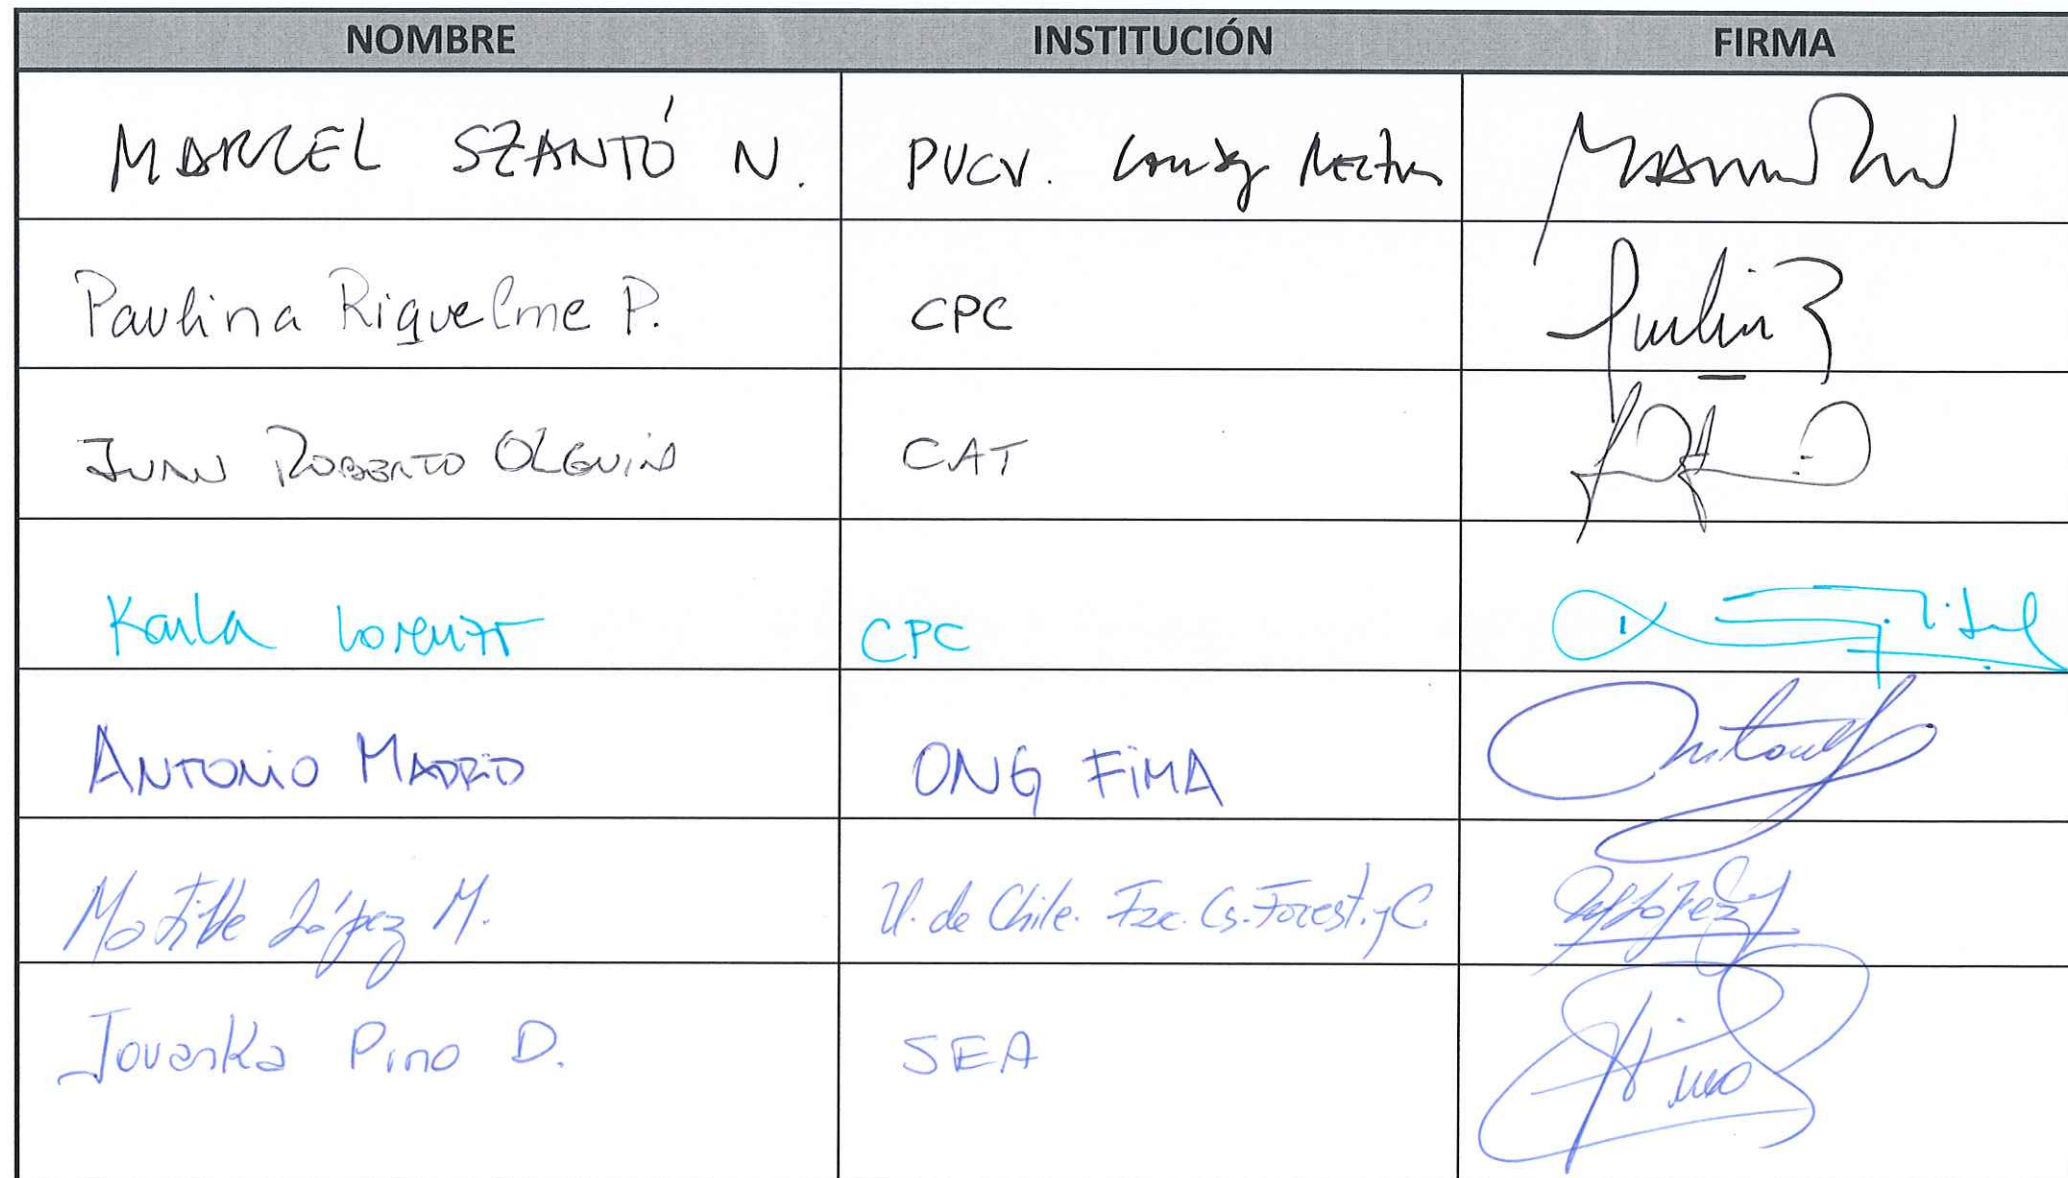 NOMBRE INSTITUCIÓN FIRMA
MARCEL SZANTÓ N. PUCV. Consejo Rector
Paulina Riquelme P. CPC
JUAN ROBERTO OLGUIN CAT
Karla Lorenzo CPC
ANTONIO MADRID ONG FIMA
Matilde López M. U. de Chile. Fac. Cs. Forest. y C. MLópez
Jovanka Pino D. SEA Pino